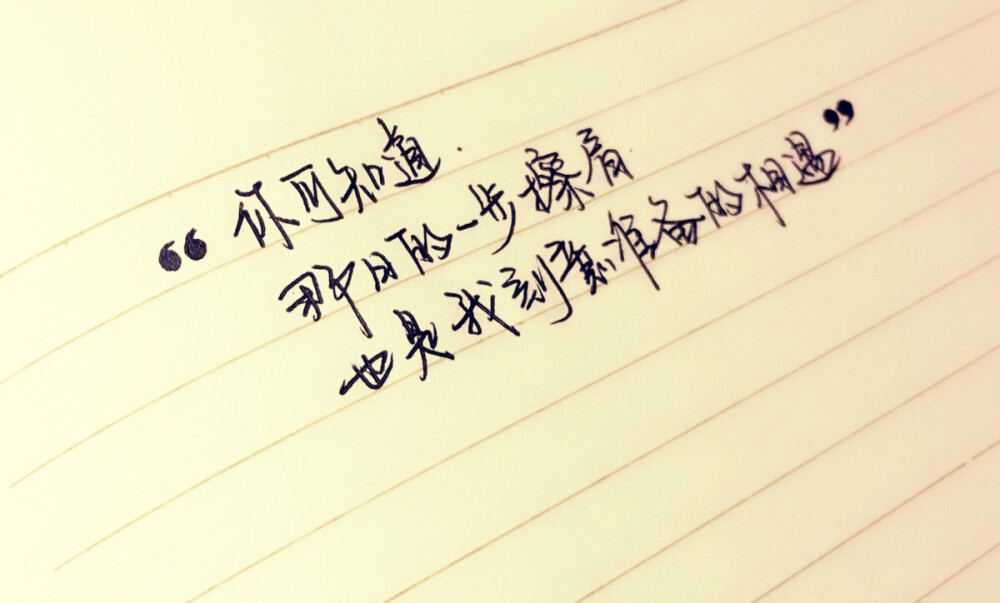 “你可知道.
那日的一步擦肩
也是我刻意准备的相遇”